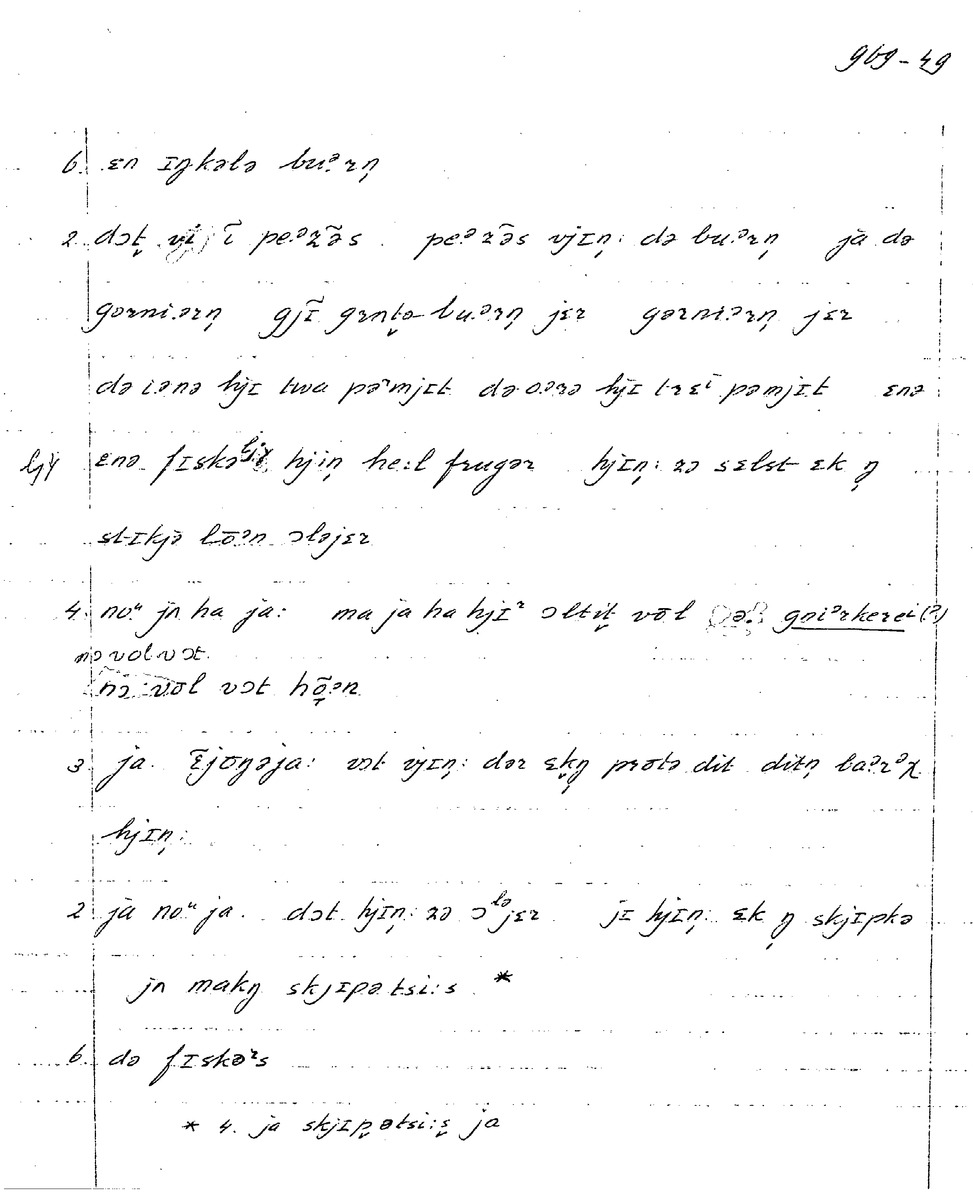 969-49
6. ɛn ɪŋkələ bu.ᵊrṇ
2. dɔt ĩ pe.ᵊzə̃s pe.ᵊzə̃s vjɪṇ: də bu.ᵊrṇ ja də
gərni.ərṇ gjĩ grṇtə bu.ᵊrṇ jɛr gərni.ərṇ jɛr
də i.ənə hjɪ twa pəʳmjɪt də o.ərə hjɪ trɛi pəmjɪt ɛnə
ɛnə fɪskə hjiṇ he:l frugər hjɪṇ: zə sɛlst ɛk ŋ̣
stɪkjə lɔ̃ᵊn ɔləjɛr
4. noᵘ jn ha ja: ma ja ha hjɪʳ ɔltit vol gni.ᵊrkerei (?)
nə vol vɔt
nɔ: vol vɔt hɔ̃.ᵊn
3. ja. ɛ̃joŋəja: vɔt vjɪṇ: dər ɛkŋ̣ protə dit ditṇ ba.ᵊrᵊχ
hjɪṇ:
2 ja noᵘ ja. dɔt hjɪṇ: zə ɔləjɛr jɪ hjɪṇ: ɛk ŋ̣ skjɪpkə
jn makŋ skjɪpətsi:s *
6. də fɪskəʳs
* 4. ja skjɪp̣ətsi:ṣ ja